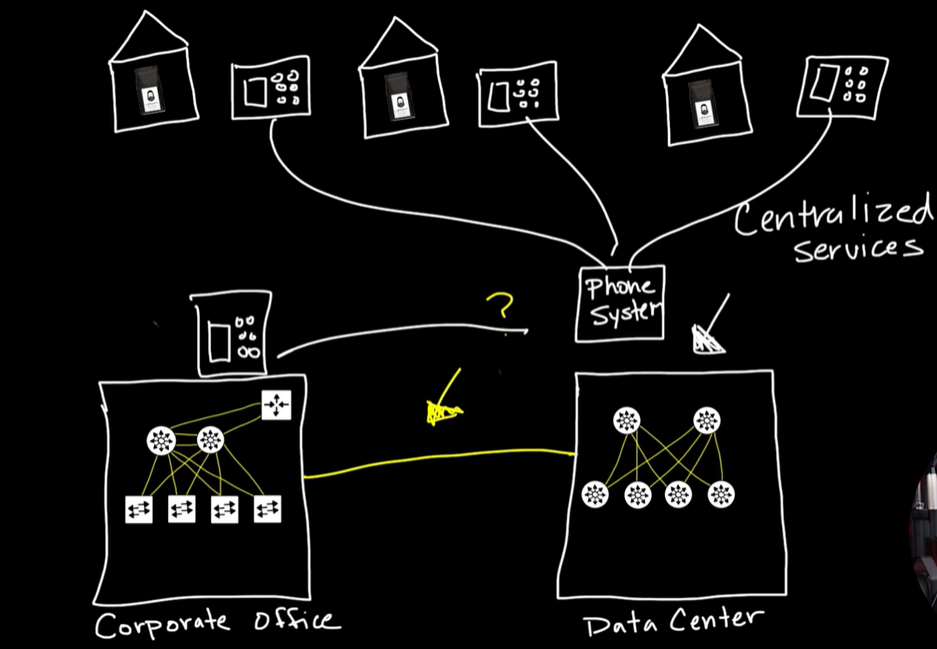 Centralized
services
Phone
System
?
Corporate Office
Data Center